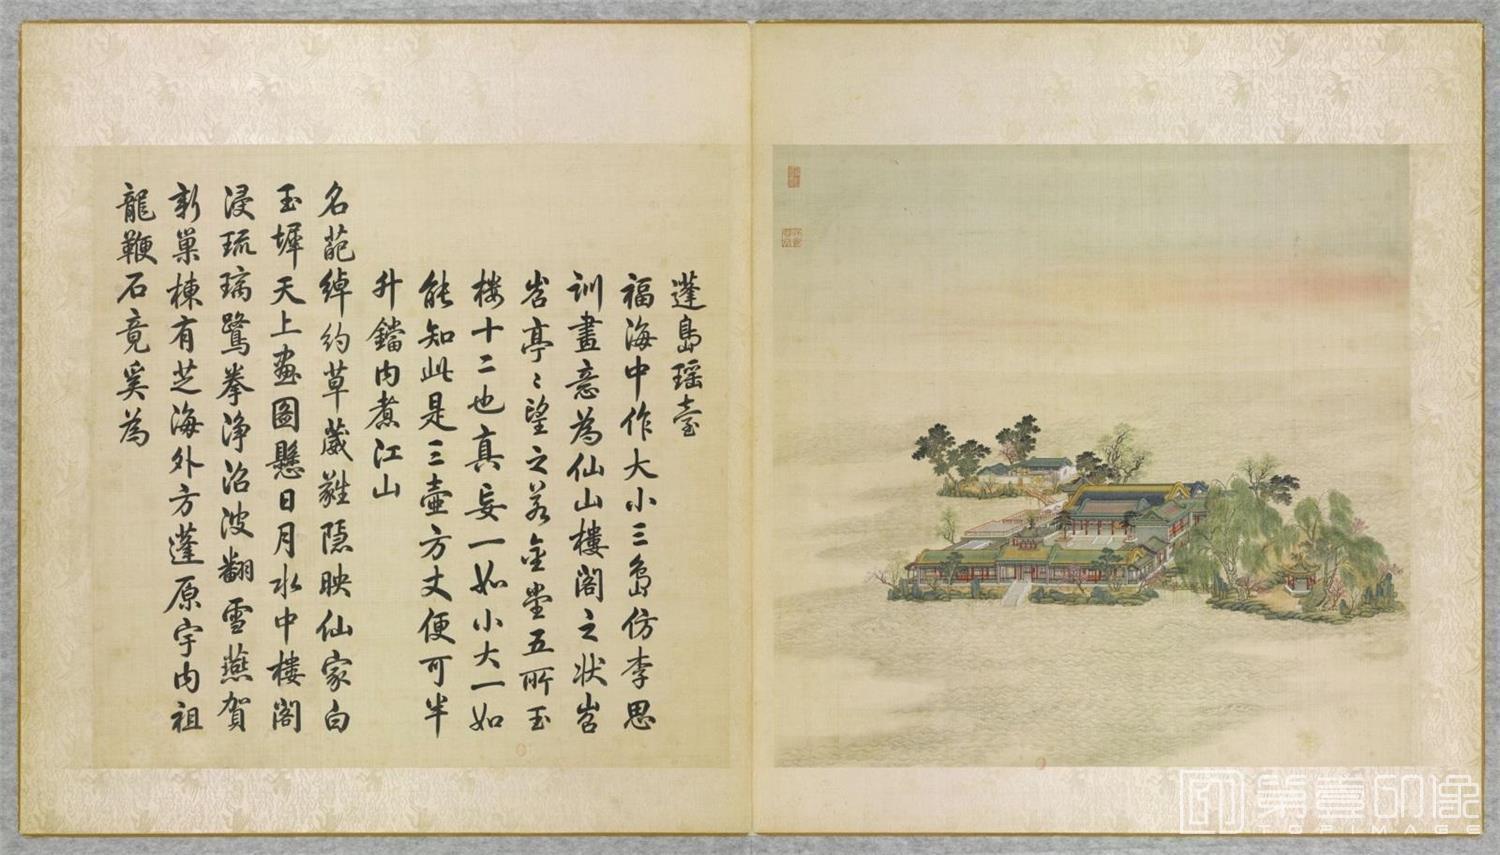 蓬島瑶臺
福海中作大小三島仿李思
訓畫意為仙山樓閣之狀岧
岧亭〻望之若金堂五所玉
楼十二也真妄一如小大一如
能知此是三壺方丈便可半
升鐺内煮江山
名葩綽約草葳蕤隱映仙家白
玉墀天上畫圖懸日月水中樓閣
浸琉璃鷺拳浄沼波翻雪燕賀
新巢棟有芝海外方蓬原宇内祖
龍鞭石竟奚為
第壹印像
TOPIMAGE